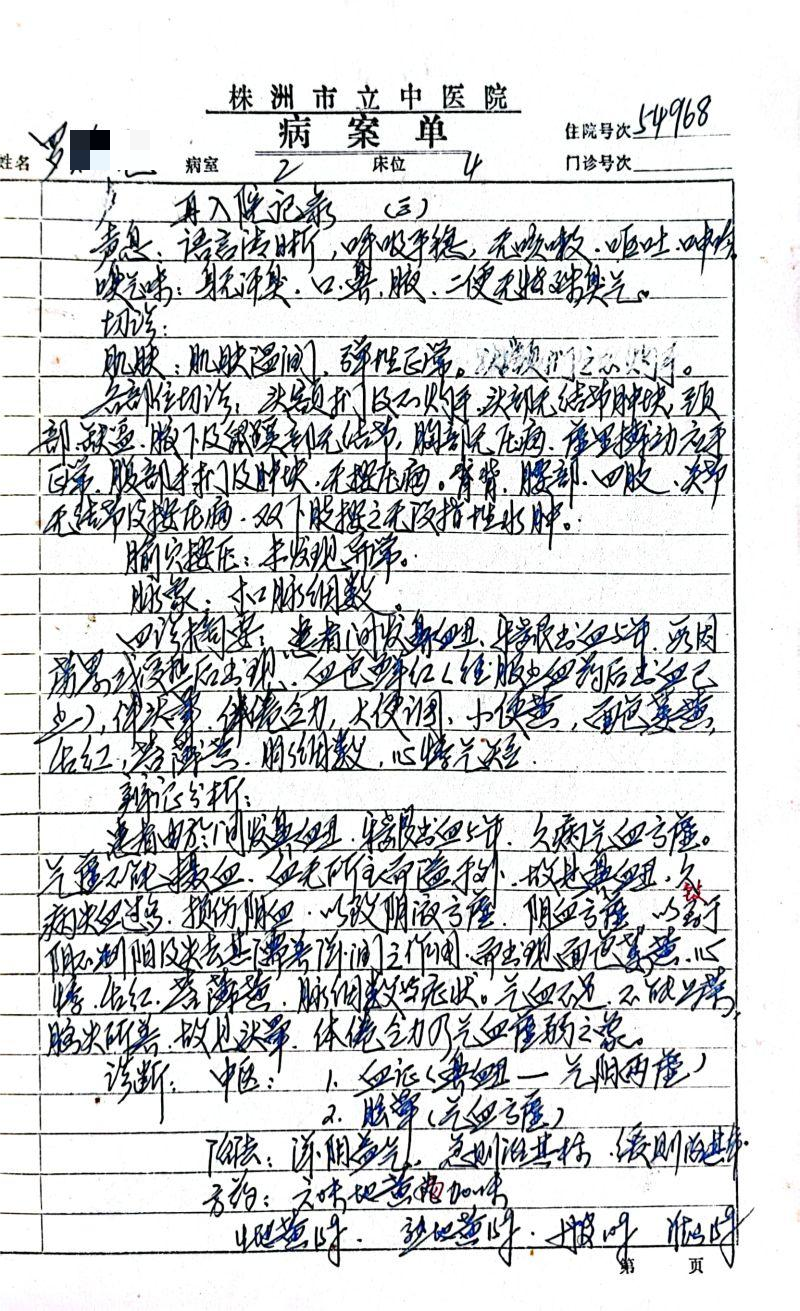 株洲市立中医院
病案单
住院号次 54968
姓名 罗 病室 2 床位 4 门诊号次
再入院记录 (三)
声息:语言清晰,呼吸平稳,无咳嗽、呕吐、呻吟。
嗅气味:身无汗臭、口、鼻、腋、二便无特殊臭气。
切诊:
肌肤:肌肤温润,弹性正常。
各部位切诊:头额扪及不灼手,头部无结节肿块,颈
部、缺盆、腋下及鼠蹊部无结节,胸部无压痛,虚里搏动应手
正常,腹部未扪及肿块,无按压痛。脊背、腰部、四肢、关节
无结节及按压痛,双下肢按之无没指性水肿。
腧穴按压:未发现异常。
脉象:寸口脉细数。
四诊摘要:患者间发鼻衄、牙龈出血5年,每因
劳累或受热后出现,血色鲜红(经服止血药后出血已
少),伴头晕,体倦乏力,大便调,小便黄,面色萎黄,
舌红,苔薄黄,脉细数,心悸气短。
辨证分析:
患者由于间发鼻衄、牙龈出血5年,久病气血亏虚。
气虚不能摄血,血无所主而溢于外,故见鼻衄,久
病失血过多,损伤阴血,以致阴液亏虚,阴血亏虚,以至于
阴不制阳及失去其濡养滋润之作用,而出现面色萎黄,心
悸,舌红,苔薄黄,脉细数等症状。气血不足,不能上荣,
脑失所养,故见头晕,体倦乏力乃气血虚弱之象。
诊断:中医:1. 血证(鼻衄—气阴两虚)
2. 眩晕(气血亏虚)
治法:滋阴益气,急则治其标,缓则治其本。
方药:六味地黄汤加味
生地黄15g、熟地黄15g、丹皮10g 淮山15g
第 页